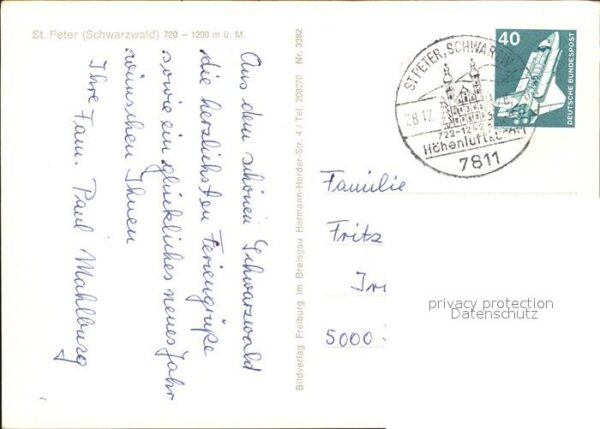 St. Peter (Schwarzwald) 720 – 1200 m ü. M.
Aus dem schönen Schwarzwald
die herzlichsten Feriengrüße
sowie ein glückliches neues Jahr
wünschen Ihnen
Ihre Fam. Paul Mahlburg
Bildverlag Freiburg im Breisgau Hermann-Herder-Str. 4 / Tel. 203070 Nr. 3382
ST. PETER, SCHWARZW
28.12.
Höhenluftkurort
7811
40
DEUTSCHE BUNDESPOST
Familie
Fritz
5000
privacy protection
Datenschutz